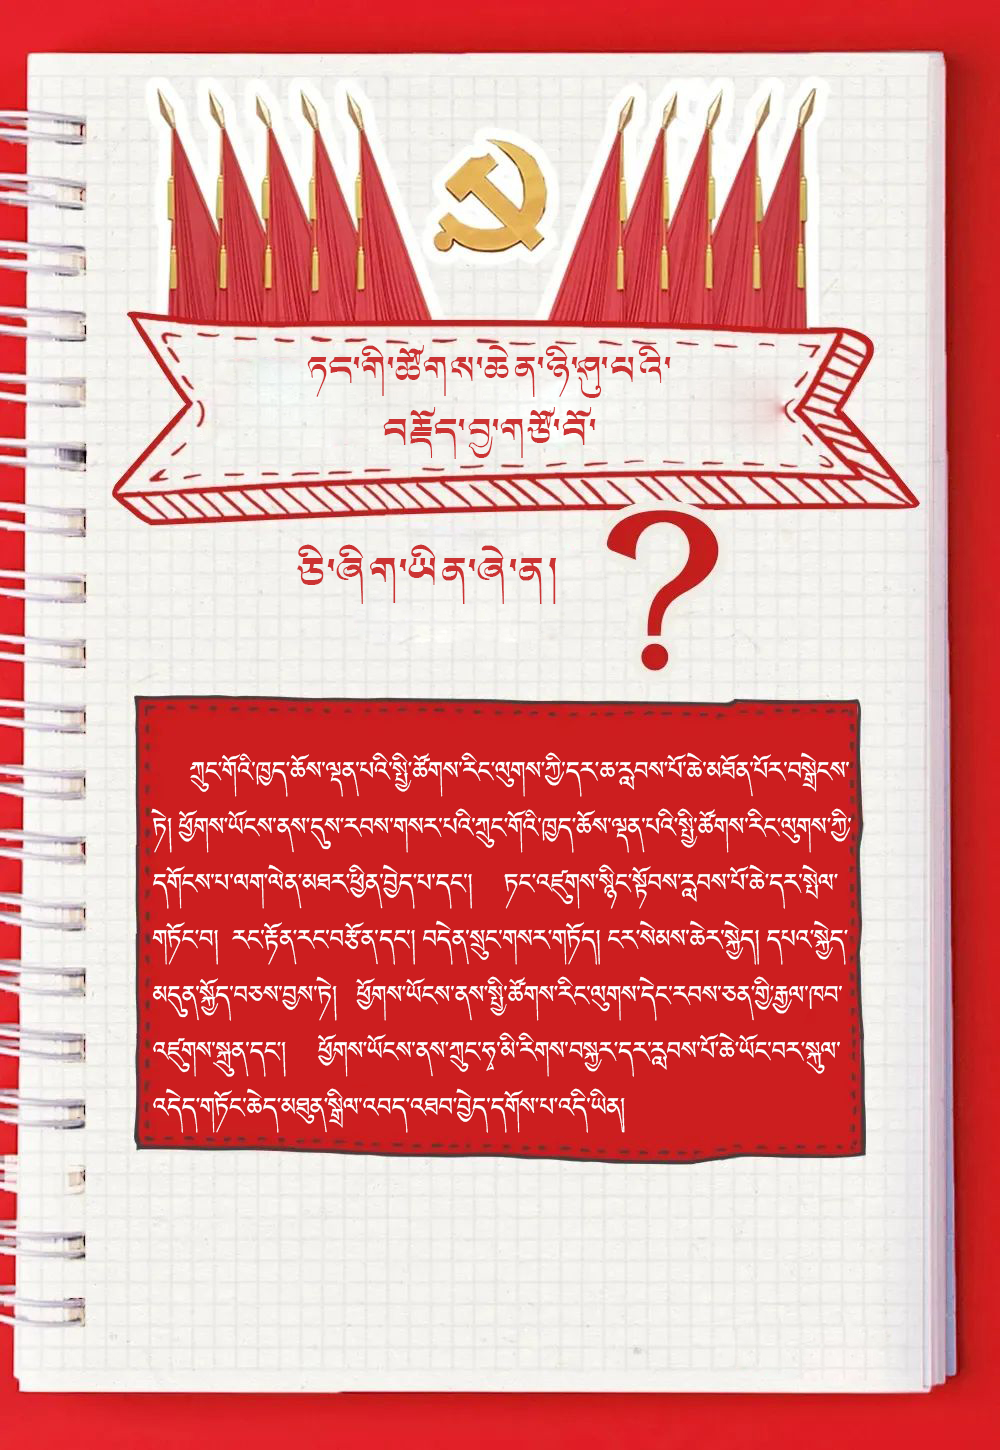 ཏང་གི་ཚོགས་ཆེན་ཉི་ཤུ་པའི་
བརྗོད་བྱ་གཙོ་བོ་
ཅི་ཞིག་ཡིན་ཞེ་ན།
?
ཀྲུང་གོའི་ཁྱད་ཆོས་ལྡན་པའི་སྤྱི་ཚོགས་རིང་ལུགས་ཀྱི་དར་ཆ་རླབས་པོ་ཆེ་མཐོན་པོར་བསྒྲེངས་
ཏེ། ཕྱོགས་ཡོངས་ནས་དུས་རབས་གསར་པའི་ཀྲུང་གོའི་ཁྱད་ཆོས་ལྡན་པའི་སྤྱི་ཚོགས་རིང་ལུགས་ཀྱི་
དགོངས་པ་ལག་ལེན་མཐར་ཕྱིན་བྱེད་པ་དང་། ཏང་འཛུགས་སྙིང་སྟོབས་རླབས་པོ་ཆེ་དར་སྤེལ་
གཏོང་བ། རང་རྟོན་རང་བརྩོན་དང་། བདེན་སྲུང་གསར་གཏོད། ངར་སེམས་ཆེར་སྐྱེད། དཔའ་སྐྱེད་
མདུན་སྐྱོད་བཅས་བྱས་ཏེ། ཕྱོགས་ཡོངས་ནས་སྤྱི་ཚོགས་རིང་ལུགས་དེང་རབས་ཅན་གྱི་རྒྱལ་ཁབ་
འཛུགས་སྐྲུན་དང་། ཕྱོགས་ཡོངས་ནས་ཀྲུང་ཧྭ་མི་རིགས་བསྐྱར་དར་རླབས་པོ་ཆེ་ཡོང་བར་སྐུལ་
འདེད་གཏོང་ཆེད་མཐུན་སྒྲིལ་འབད་འཐབ་བྱེད་དགོས་པ་འདི་ཡིན།